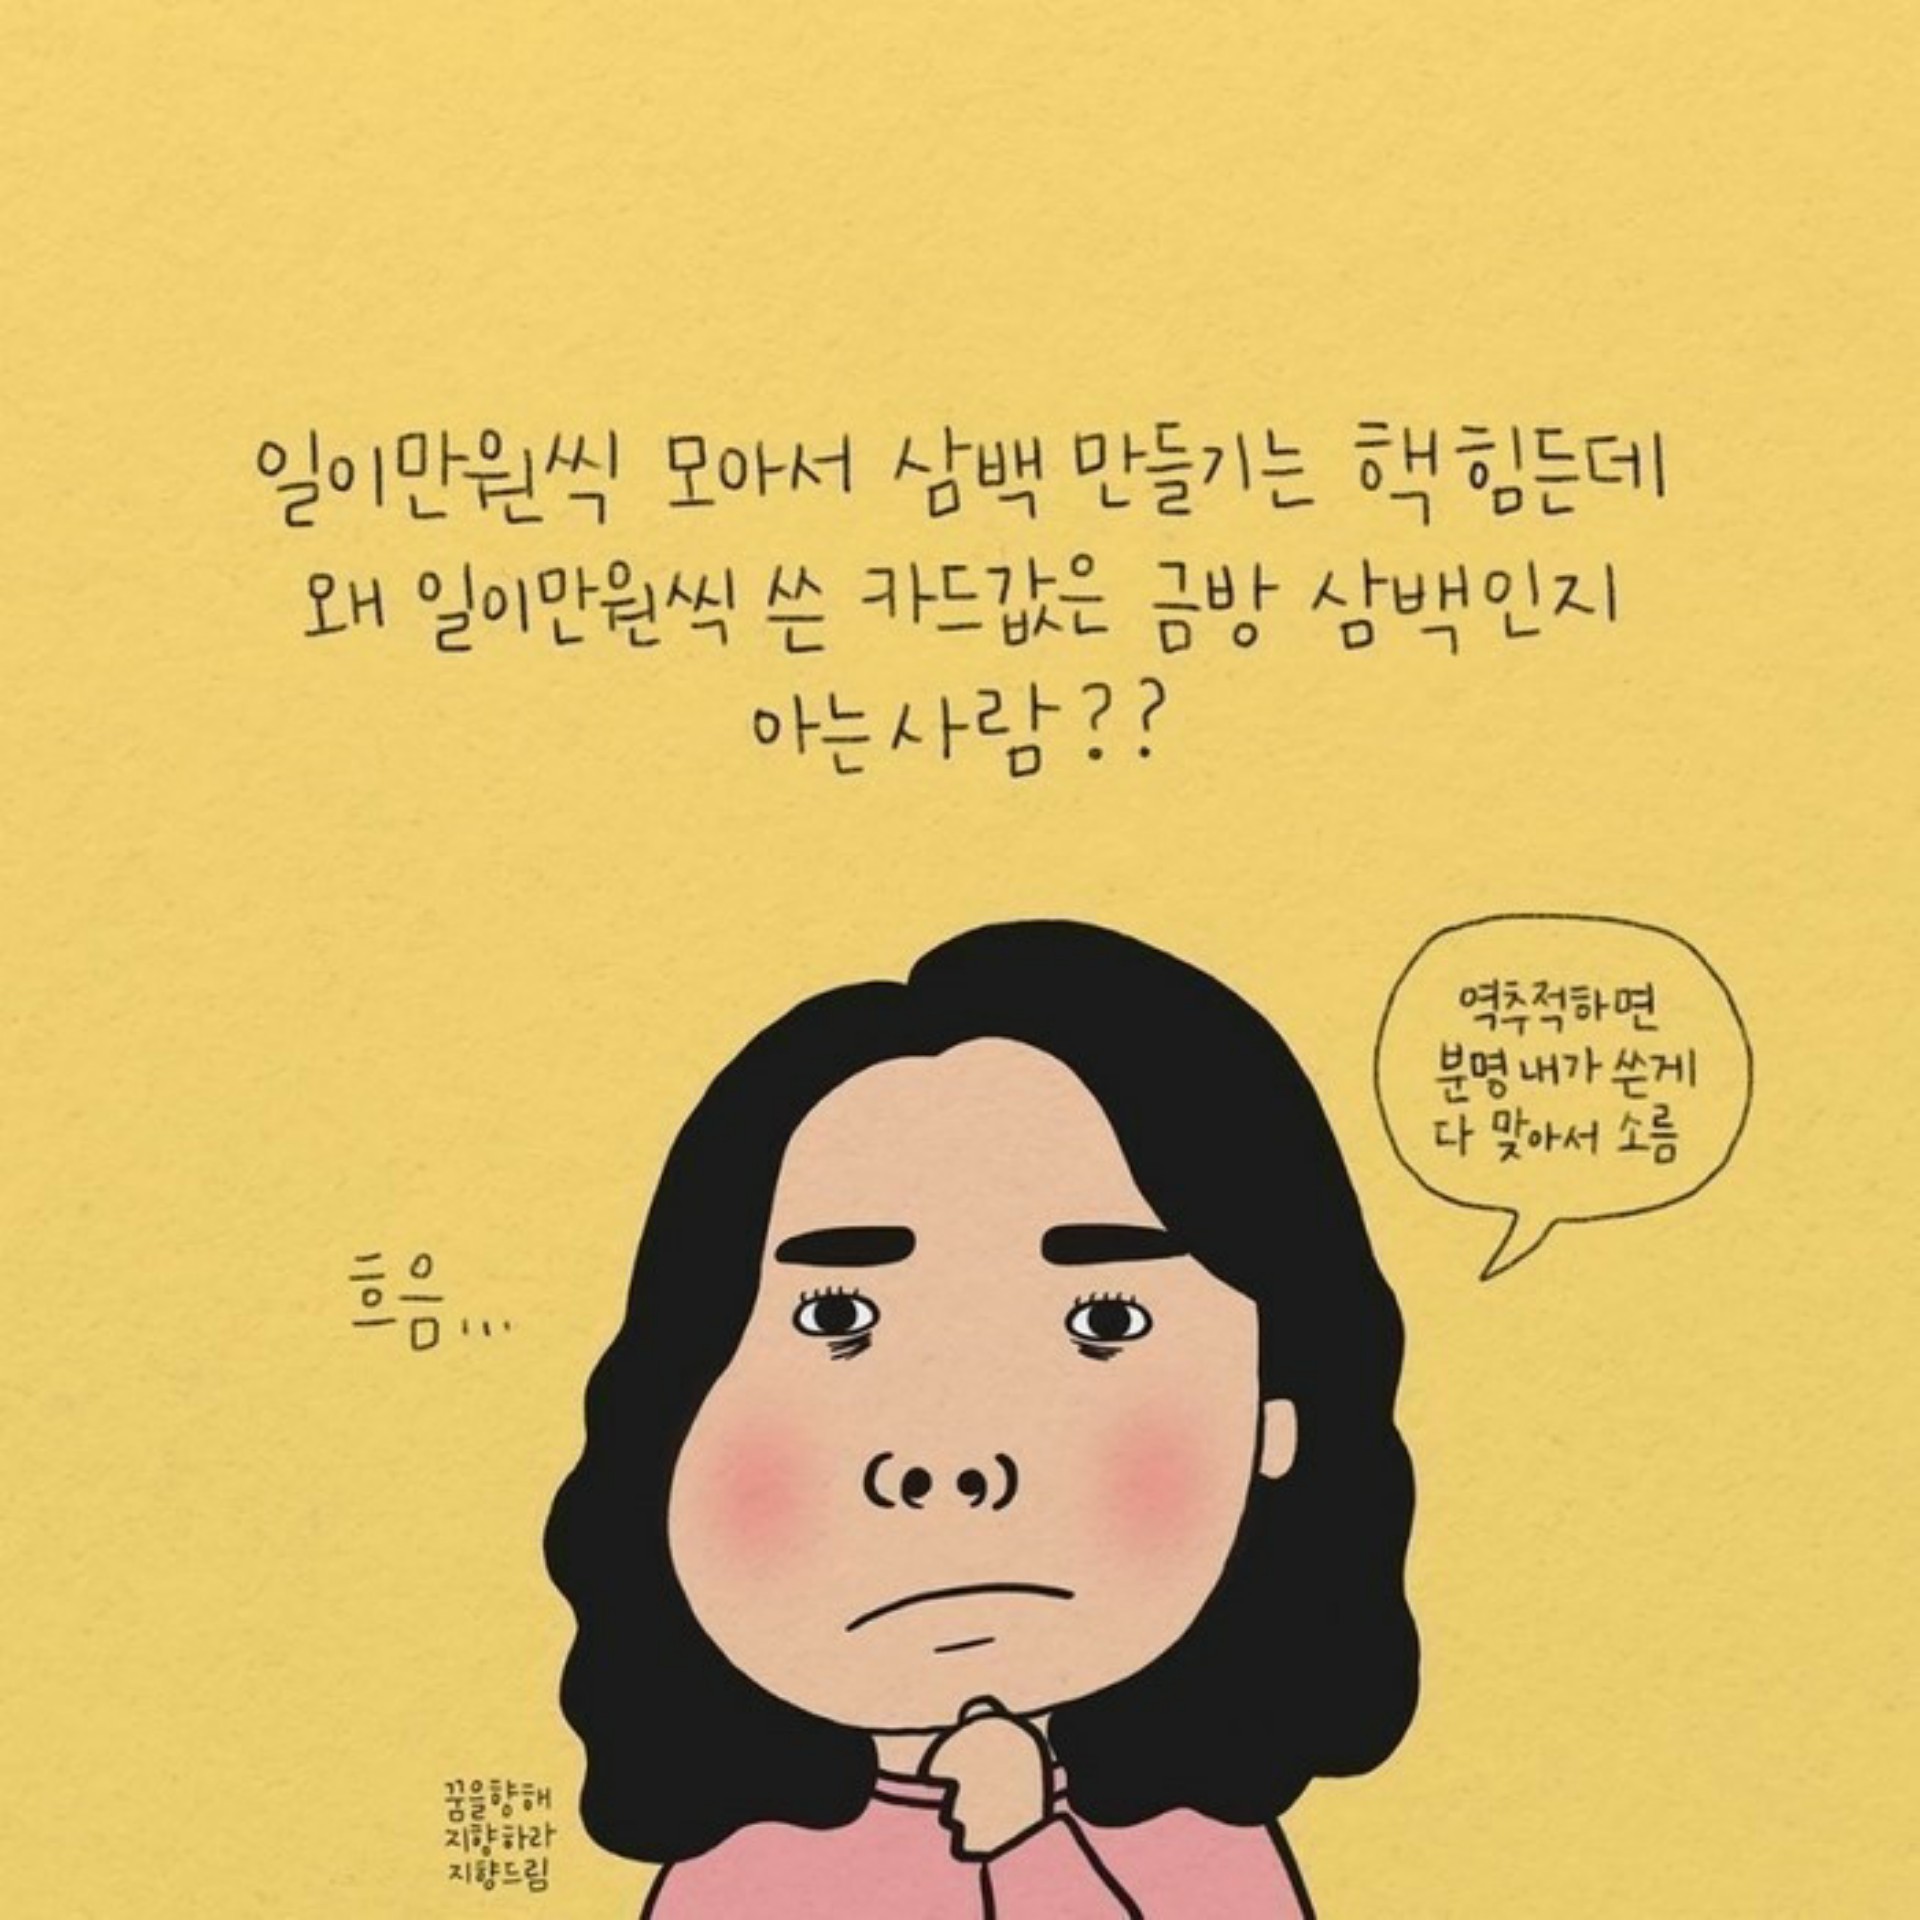 일이만원씩 모아서 삼백 만들기는 핵힘든데
왜 일이만원씩 쓴 카드값은 금방 삼백인지
아는사람??
역추적하면
분명 내가 쓴게
다 맞아서 소름
흐음...
꿈을향해
지향하라
지향드림